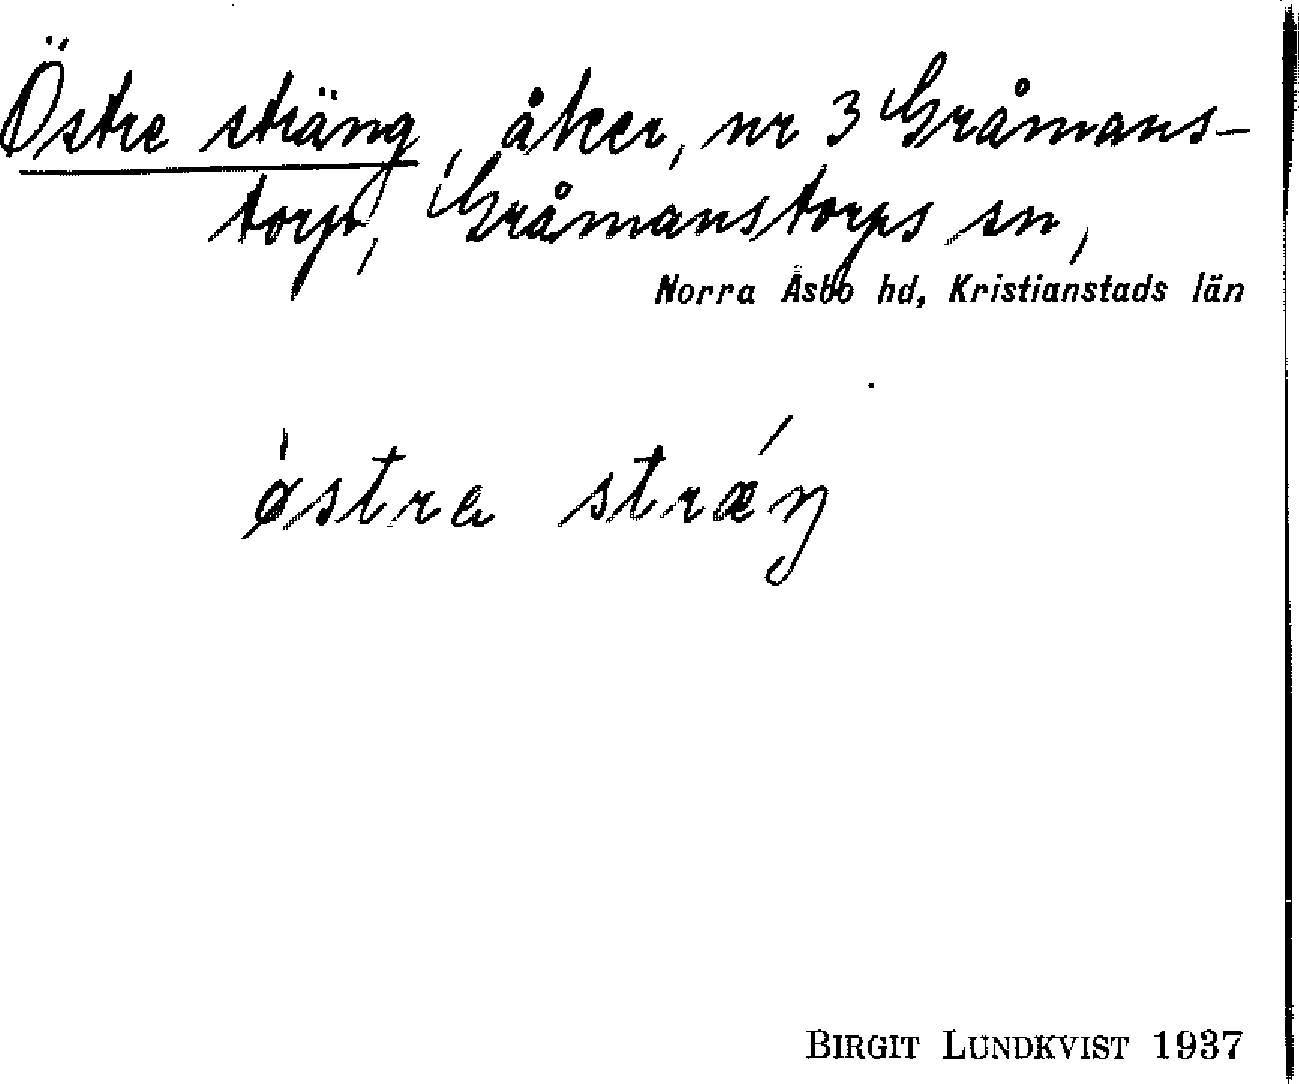 Östre sträng, åker, nr 3 Gråmans-
torp, Gråmanstorps sn,
Norra Åsbo hd, Kristianstads län
ø̀stra stræ´ŋ
BIRGIT LUNDKVIST 1937